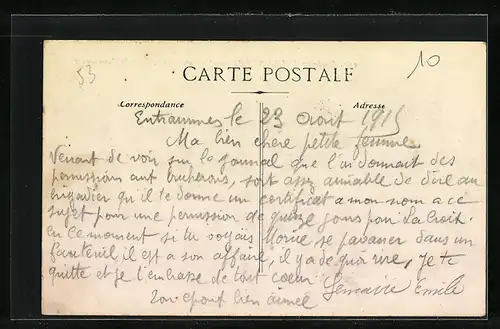 53
10
CARTE POSTALE
Correspondance
Adresse
Entrammes le 23 Aout 1915
Ma bien chère petite femme
Venant de voir sur le journal que l'on donnait des
permissions aux bucherons, soit assez aimable de dire au
brigadier qu'il te donne un certificat a mon nom a ce
sujet pour une permission de quinze jours pour la
En ce moment si tu voyais se pavaner dans un
fauteuil il est a son affaire, il y a de quoi rire, je te
quitte et je t'embrasse de tout coeur Lemaire Emile
Ton epoux bien aimée